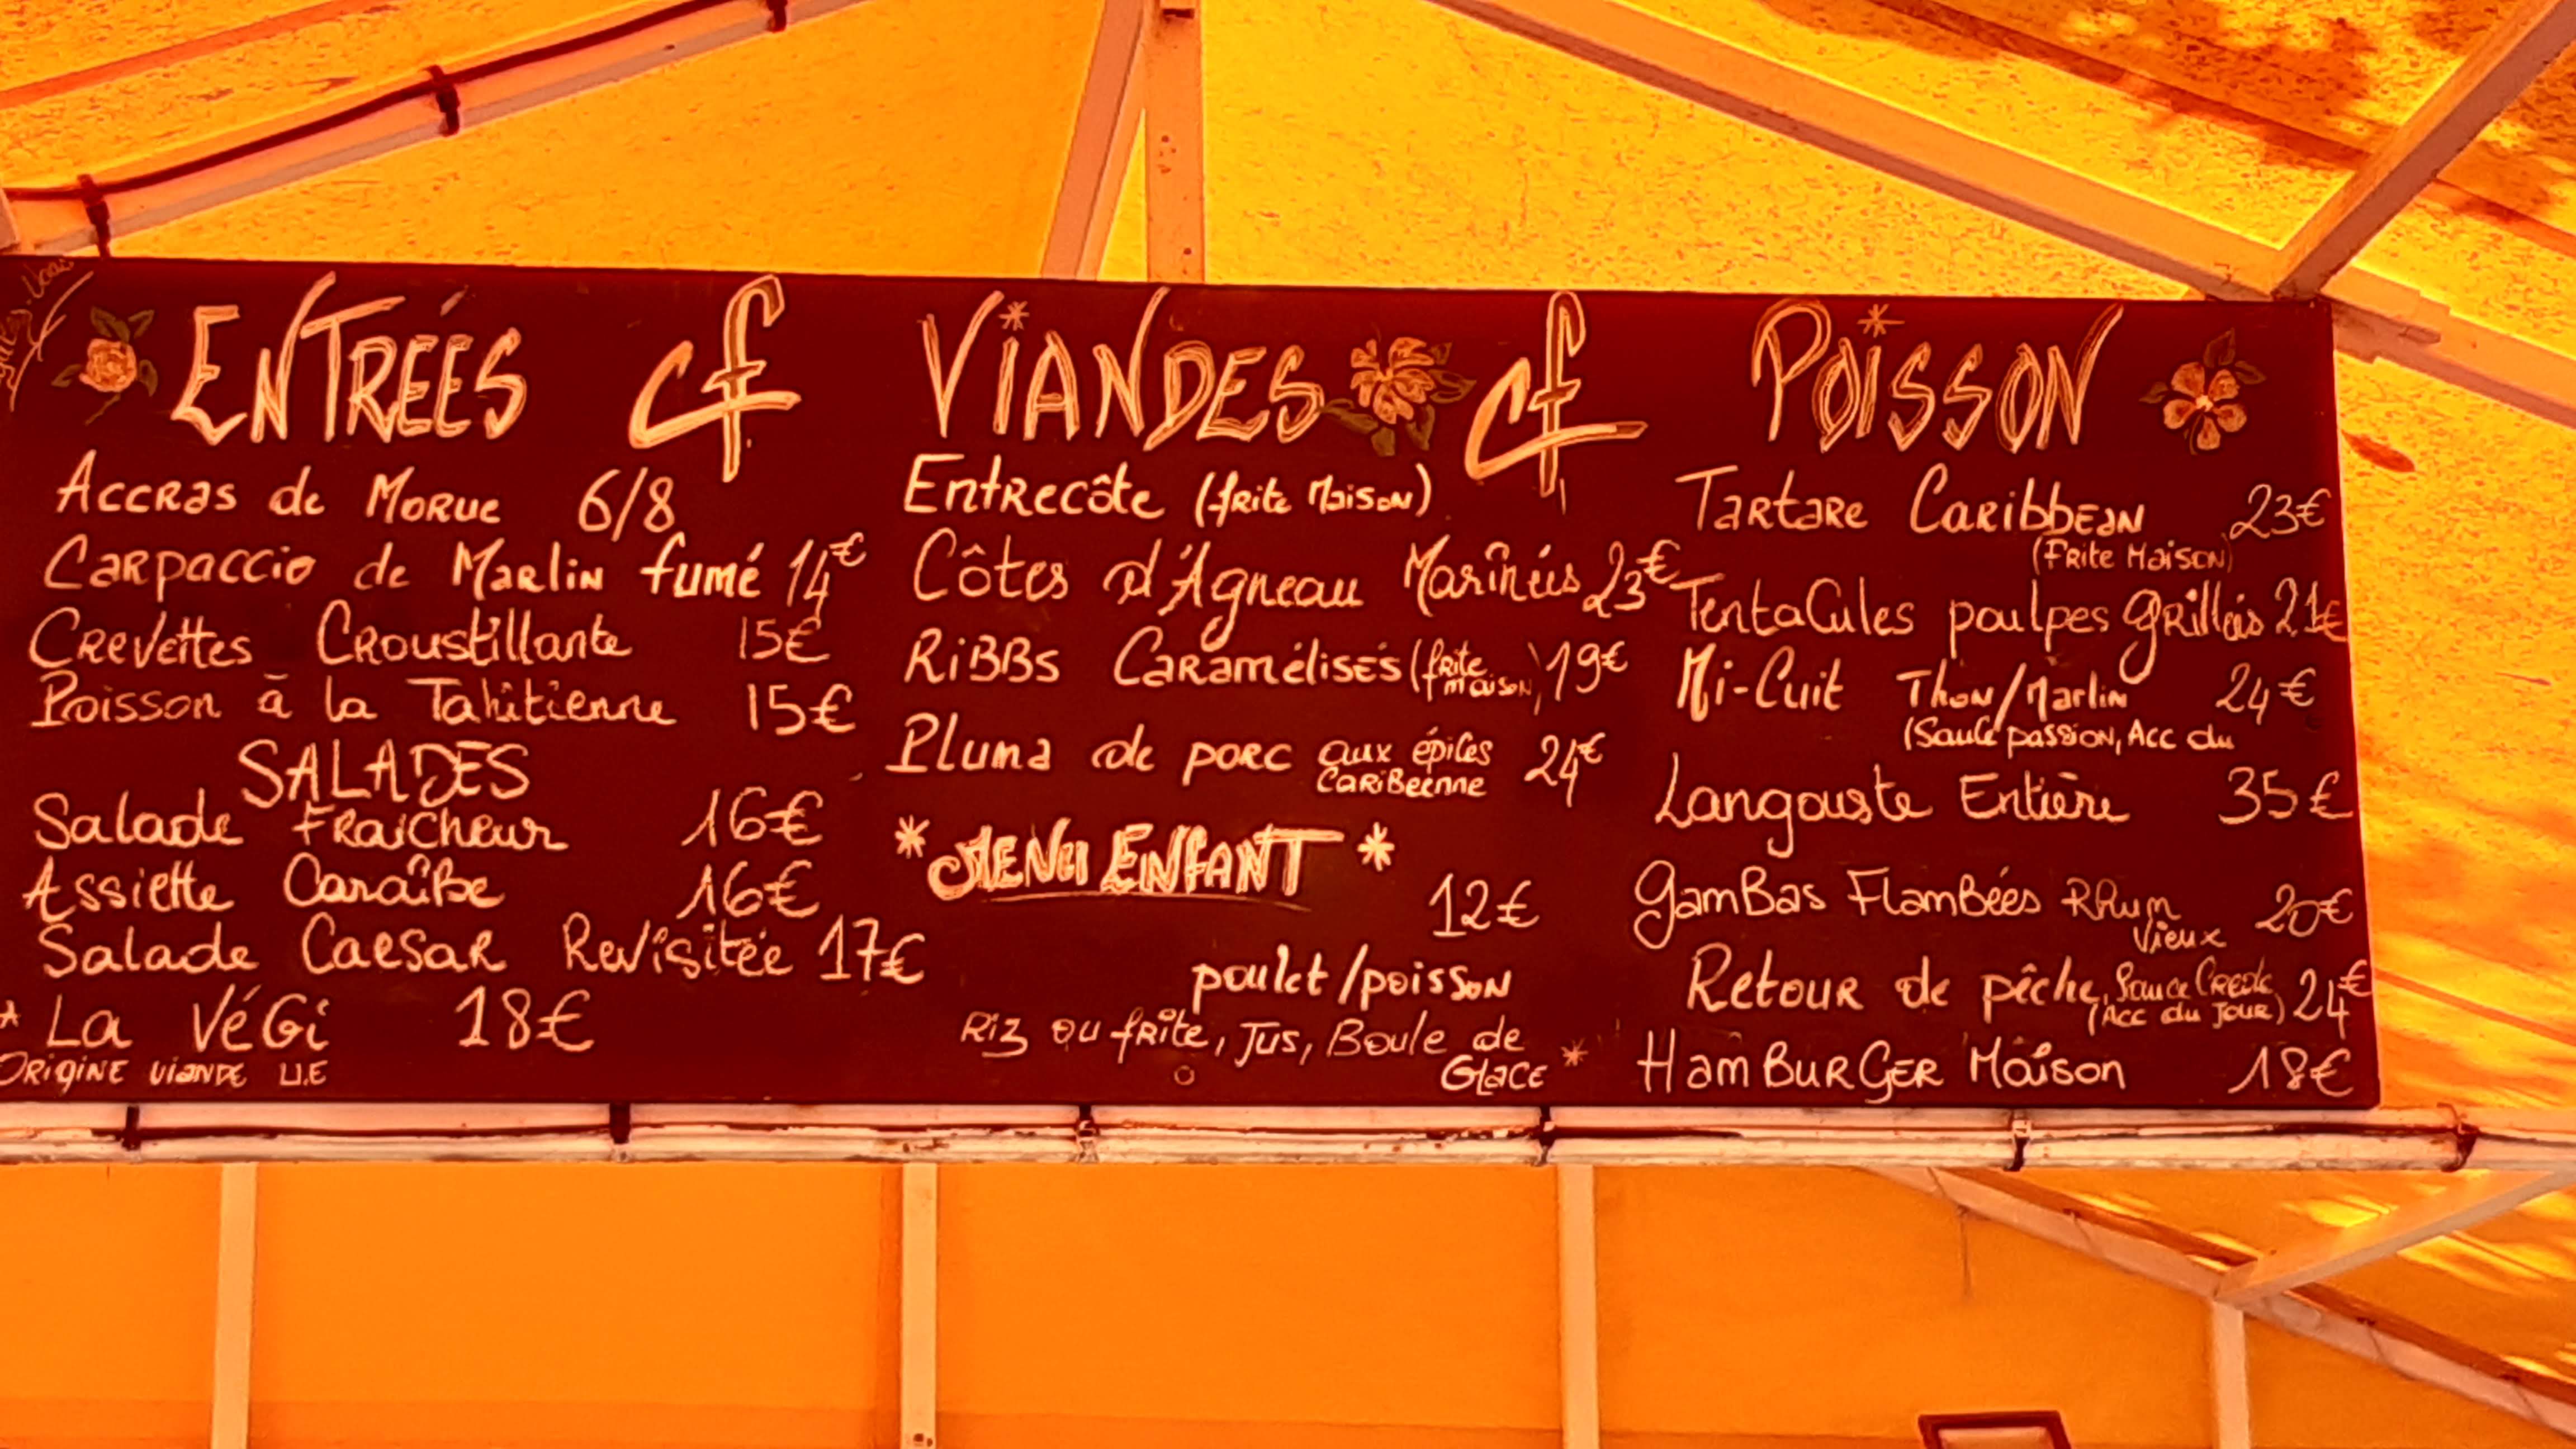 ENTRÉES
Accras de Morue 6/8
Carpaccio de Marlin fumé 14€
Crevettes Croustillante 15€
Poisson à la Tahitienne 15€
SALADES
Salade Fraicheur 16€
Assiette Caraïbe 16€
Salade Caesar Revisitée 17€
* La VéGi 18€
ORIGINE VIANDE U.E
cf
VIANDES
Entrecôte (frite Maison)
Côtes d'Agneau Marinées 23€
RiBBs Caramélisés (frite maison) 19€
Pluma de porc aux épices 24€
CariBeenne
* MENU ENFANT *
12€
poulet/poisson
Riz ou frite, Jus, Boule de
Glace *
cf
POISSON
Tartare Caribbean 23€
(Frite Maison)
Tentacules poulpes grillés 21€
Mi-Cuit Thon/Marlin 24€
(Sauce passion, Acc du
Langouste Entière 35€
GamBas FlamBées Rhum Vieux 20€
Retour de pêche, Sauce Creole 24€
(Acc du Jour)
HamBurGer Maison 18€